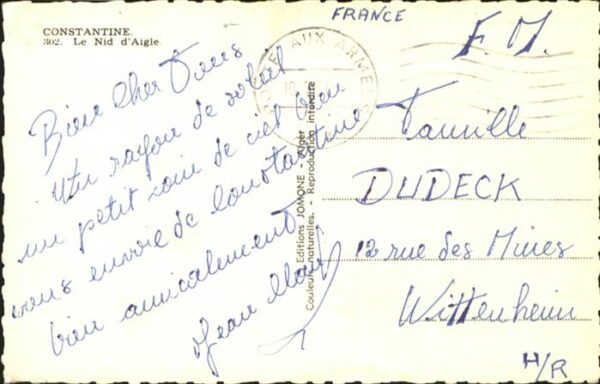 CONSTANTINE.
302. Le Nid d'Aigle.
Bien cher
Un rayon de soleil
un petit coin de ciel bleu
vous envoie de Constantine
bien amicalement
Jean
Editions JOMONE - Alger
Couleurs naturelles. - Reproduction interdite
POSTE AUX ARMEES
FRANCE
F. M.
Famille
DUDECK
12 rue des Mines
Wittenheim
H/R